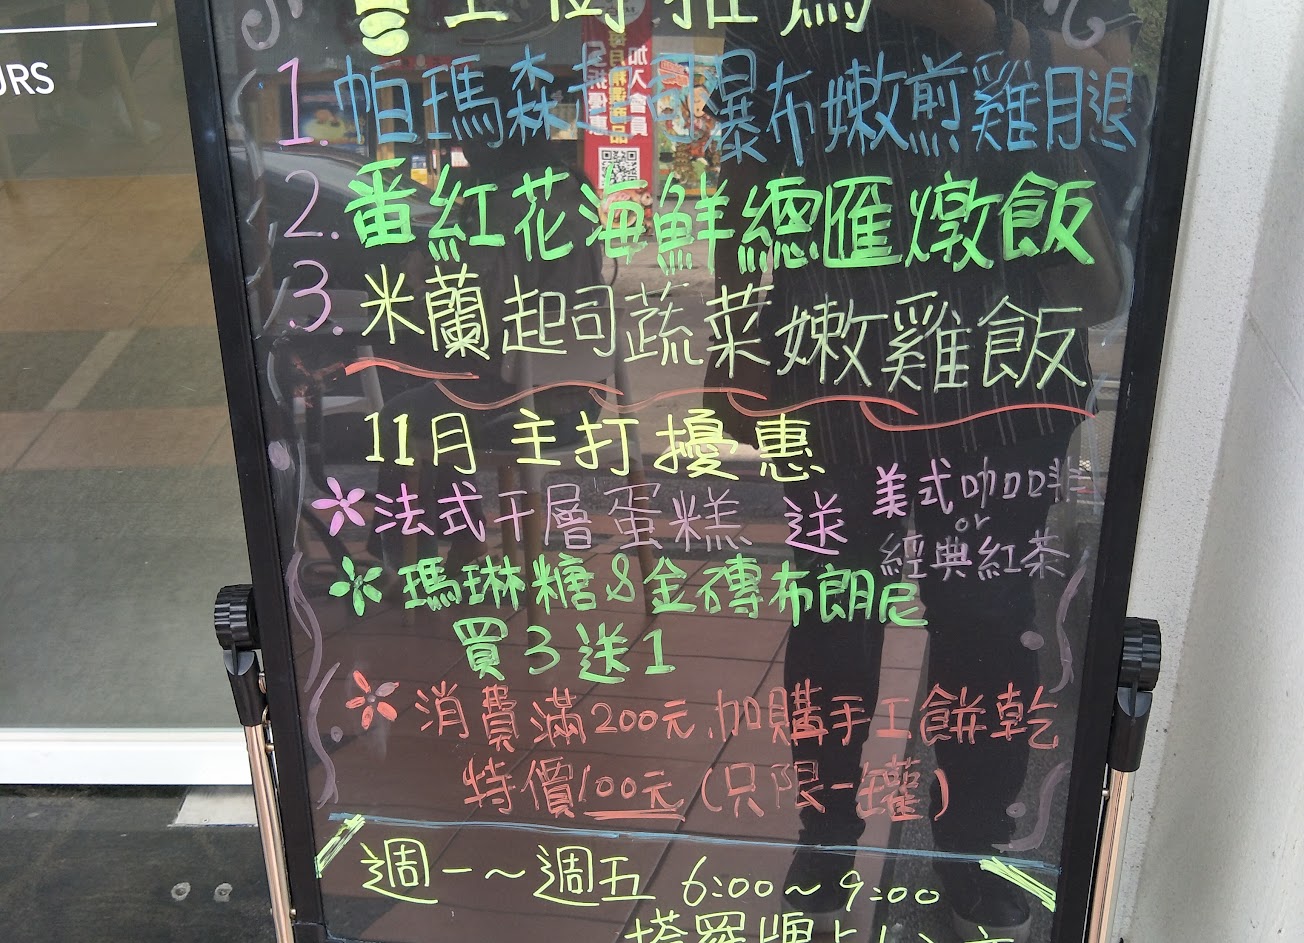 URS
主廚推薦
1. 帕瑪森起司瀑布嫩煎雞腿
2. 番紅花海鮮總匯燉飯
3. 米蘭起司蔬菜嫩雞飯
11月 主打擾惠
法式千層蛋糕 送 美式咖啡
or
經典紅茶
瑪琳糖&金磚布朗尼
買3送1
消費滿200元,加購手工餅乾
特價100元(只限一罐)
週一~週五 6:00~9:00
塔羅牌